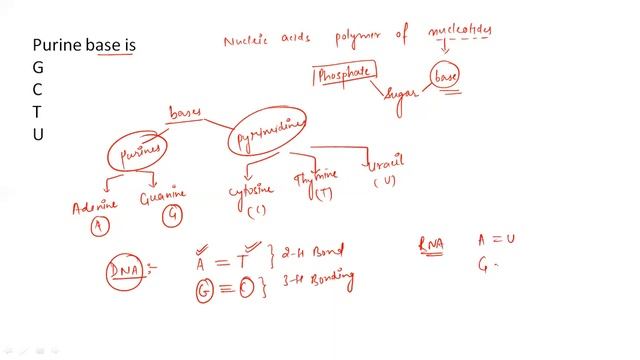 Purine base is
G
C
T
U
Nucleic acids polymer of nucleotides
Phosphate
base
Sugar
bases
purines
pyrimidines
Adenine
A
Guanine
G
Cytosine
(C)
Thymine
(T)
Uracil
(U)
DNA :-
A = T } 2-H Bond
G ≡ C } 3-H Bonding
RNA A = U
G -